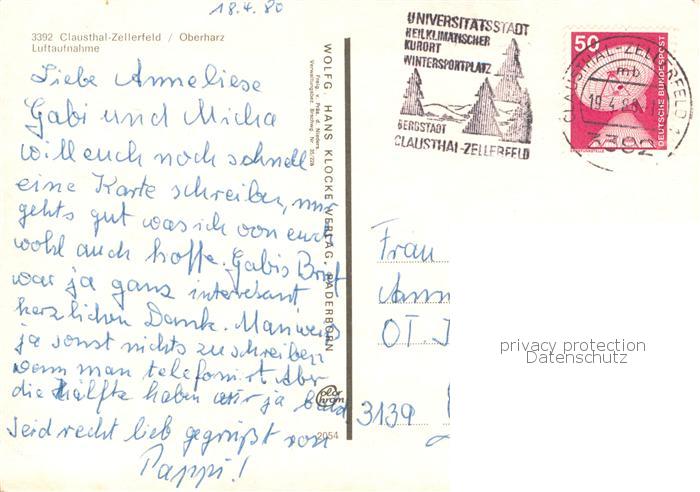 18.4.80
3392 Clausthal-Zellerfeld / Oberharz
Luftaufnahme
Liebe Anneliese
Gabi und Micha
will euch noch schnell
eine Karte schreiben, mir
gehts gut was ich von euch
wohl auch hoffe. Gabis Brief
war ja ganz interesant
herzlichen Dank. Man weis
ja sonst nichts zu schreiben
wenn man telefoniert Aber
die Hälfte haben wir ja bald
Seid recht lieb gegrüßt von
Pappi!
WOLFG. HANS KLOCKE VERLAG, PADERBORN
Freig. v. Präs. d. Nieders.
Verwaltungsbez. Braschwg. Nr.
color
2054
UNIVERSITÄTSSTADT
HEILKLIMATISCHER
KURORT
WINTERSPORTPLATZ
BERGSTADT
CLAUSTHAL-ZELLERFELD
50
DEUTSCHE BUNDESPOST
CLAUSTHAL-ZELLERFELD 1
mb
19.4.80
3392
Frau
Ann
OT.
3139
privacy protection
Datenschutz